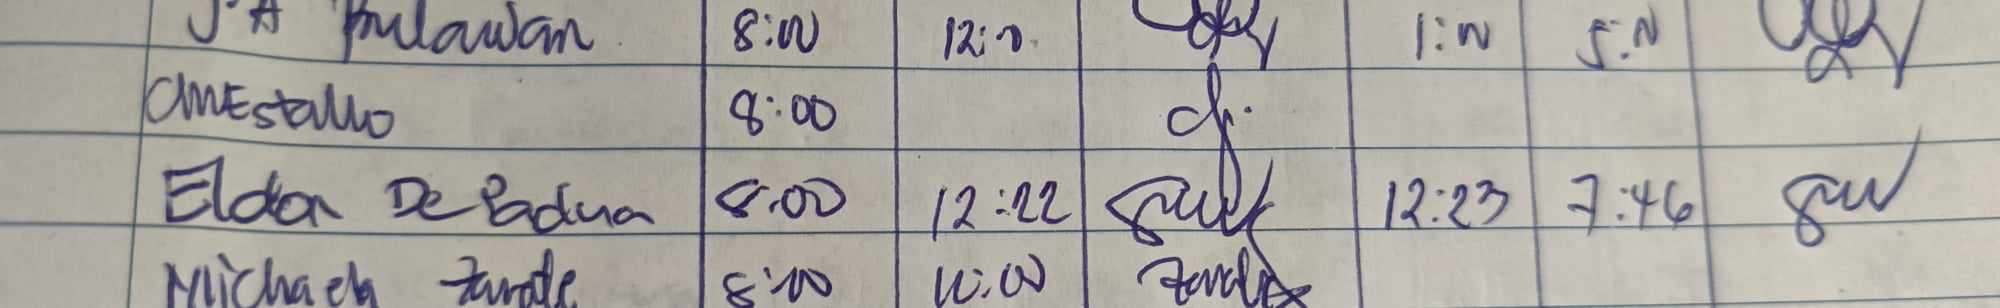 JA Bulawan 8:00 12:0. 1:00 5:00
CMEstallo 8:00
Eldon De Padua 8:00 12:22 12:23 7:46
Michaela Zarate 8:00 Zarate